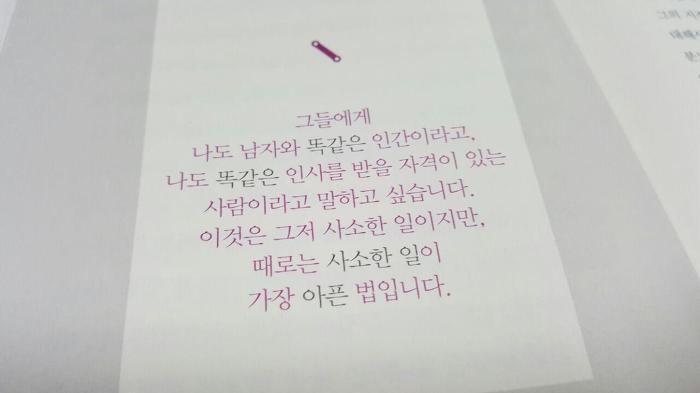 그들에게
나도 남자와 똑같은 인간이라고,
나도 똑같은 인사를 받을 자격이 있는
사람이라고 말하고 싶습니다.
이것은 그저 사소한 일이지만,
때로는 사소한 일이
가장 아픈 법입니다.
그의